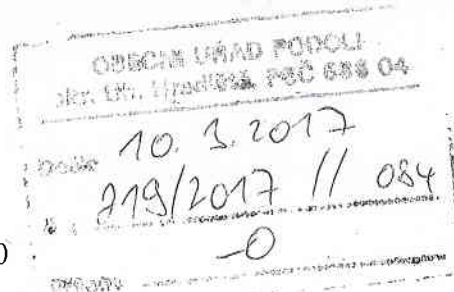 OBECNÍ ÚŘAD PODOLÍ
okr. Uh. Hradiště, PSČ 686 04
Došlo 10. 3. 2017
219/2017 // 084
-0